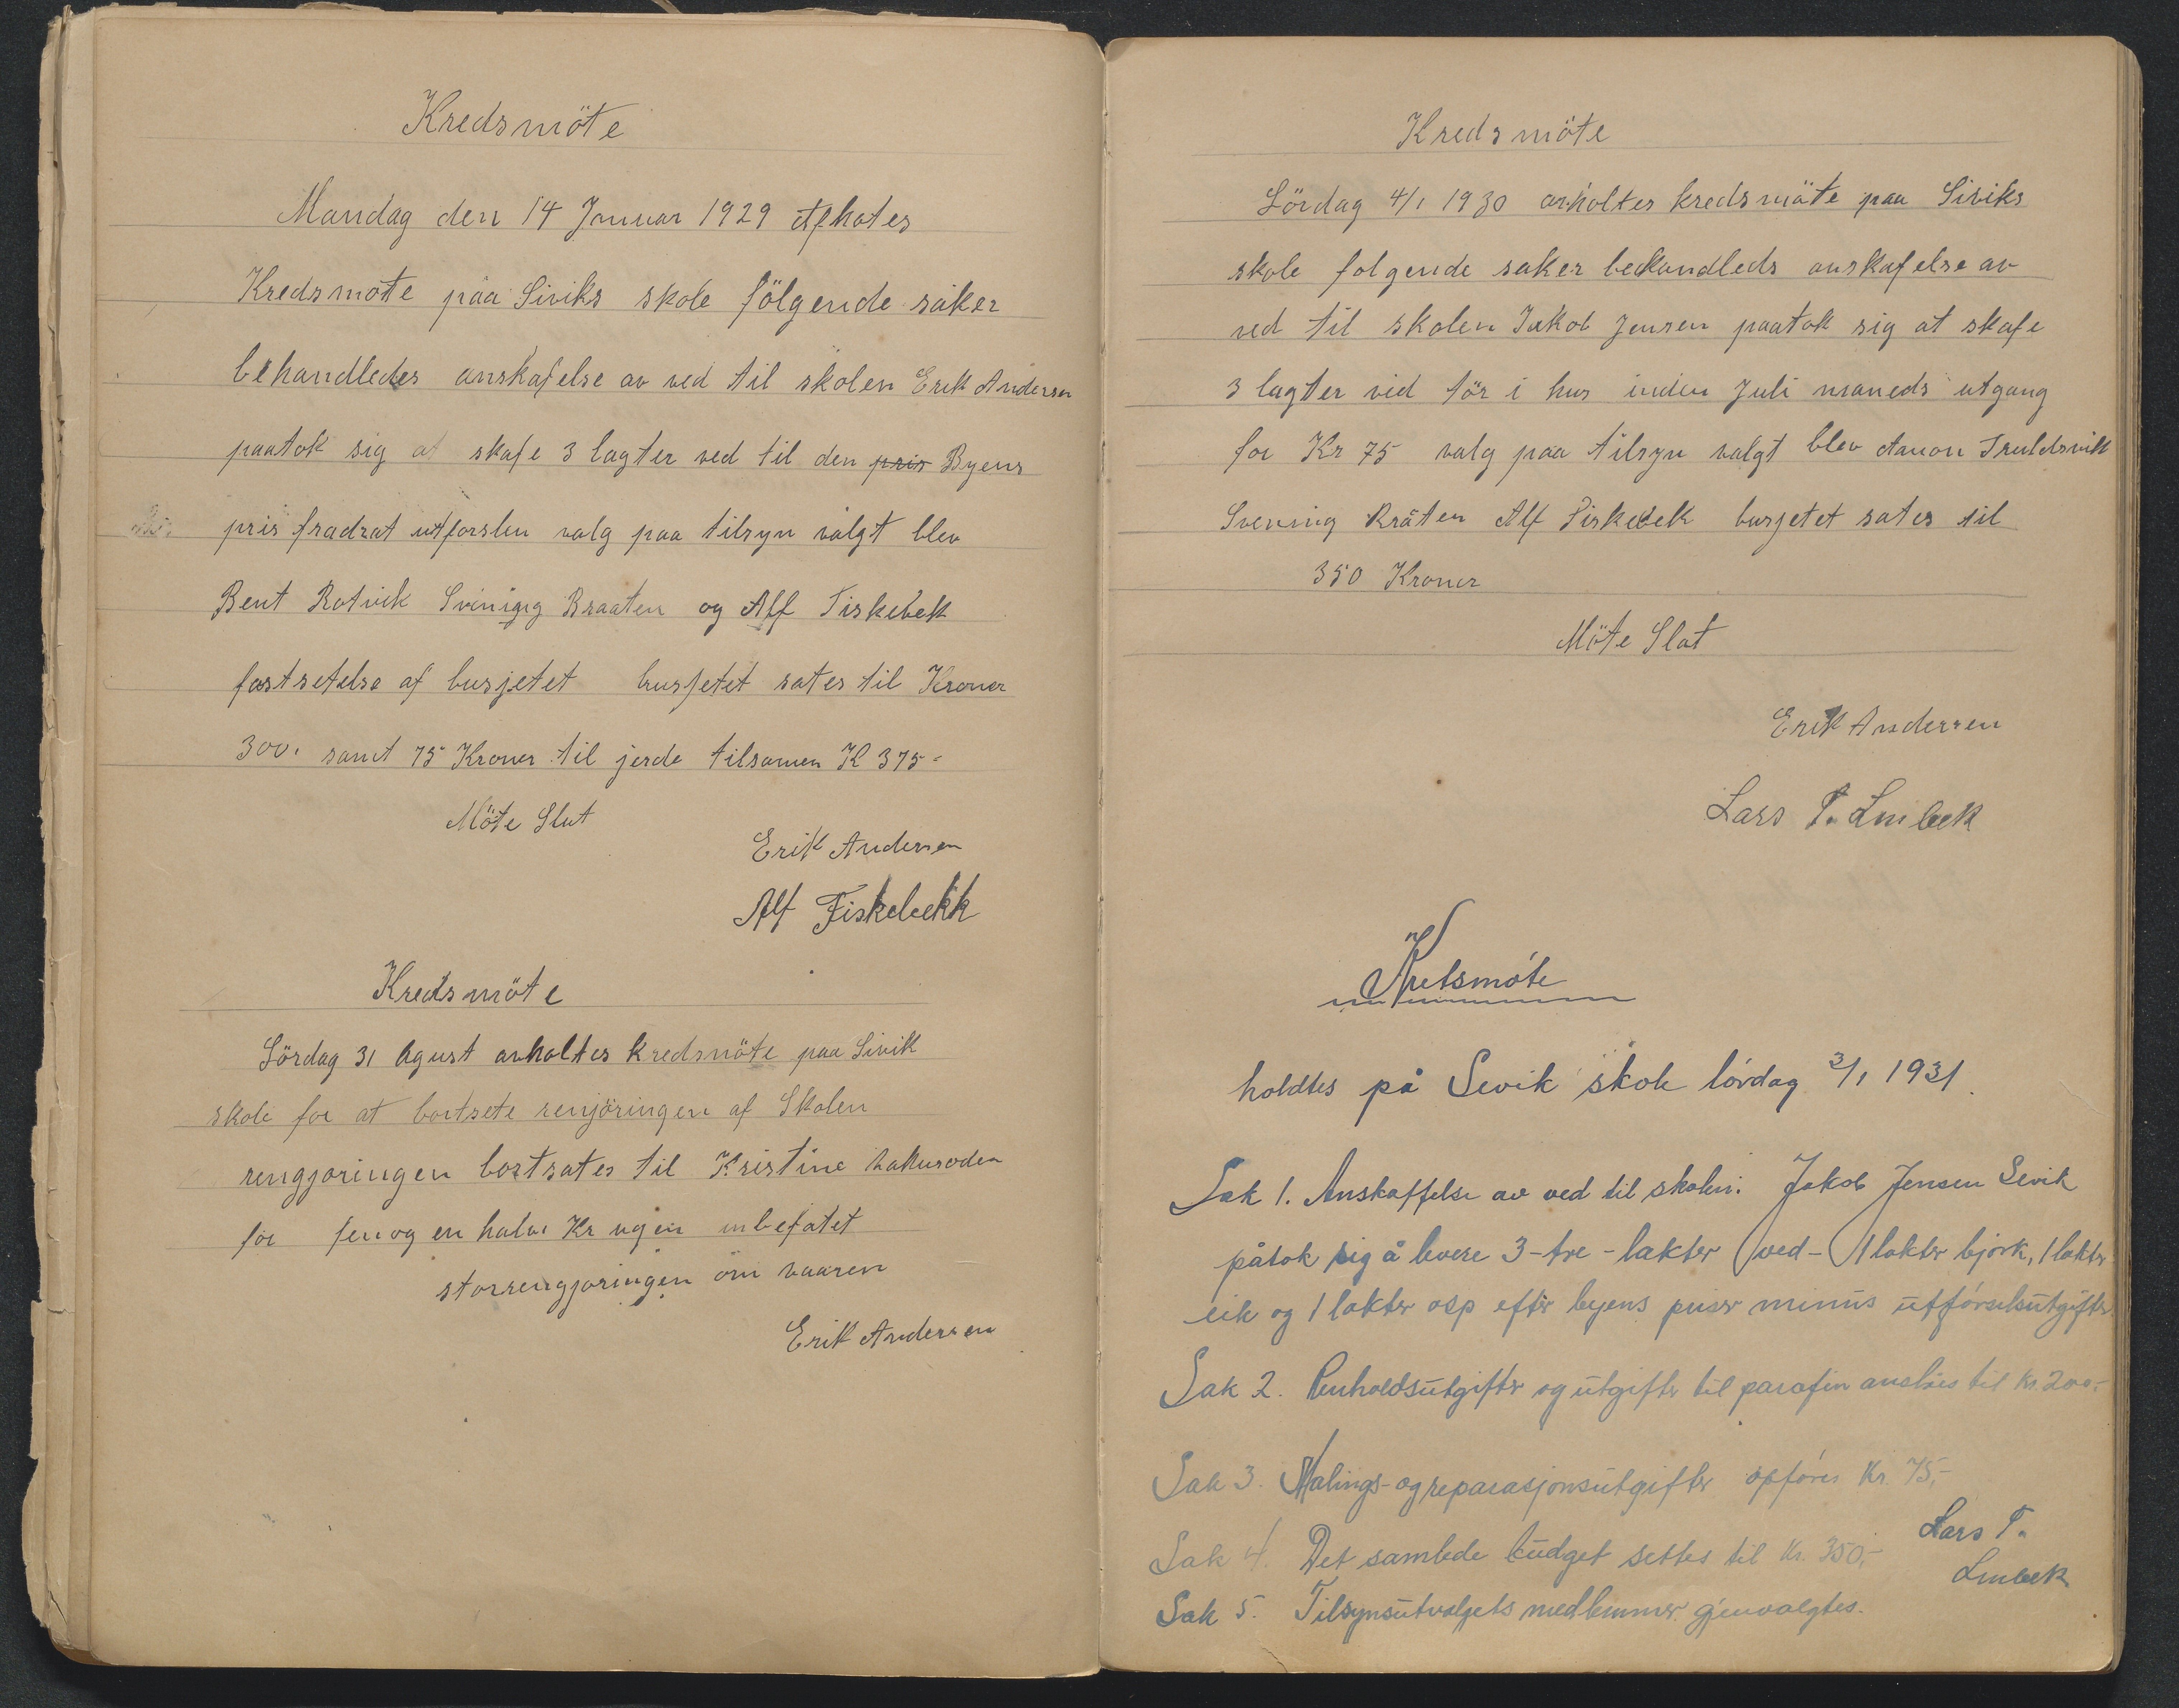 Kredsmöte
Mandag den 14 Januar 1929 Afhotes
Kredsmote paa Siviks skole fölgende saker
behandledes anskafelse av ved til skolen Erik Andersen
paatok sig at skafe 3 lagter ved til den pris Byens
pris fradrat utforslen valg paa tilsyn valgt blev
Bent Rotvik Sviniging Braaten og Alf Fiskebek
fastsetelse af busjetet busjetet sates til Kroner
300. samt 75 Kroner til jerde tilsamen K 375-
Möte Slut
Erik Andersen
Alf Fiskebekk
Kredsmöte
Lördag 31 Agust avholtes kredsmöte paa Sivik
skole for at bortsete renjöringen af Skolen
rengjoringen bortsates til Kristine
for fem og en halv Kr ugen inbefatet
storrengjoringen om vaaren
Erik Andersen
Kredsmöte
Lördag 4/1 1930 avholtes kredsmöte paa Siviks
skole folgende saker behandleds anskafelse av
ved til skolen Jakob Jensen paatok sig at skafe
3 lagter ved tör i hus inden Juli maneds utgang
for Kr 75 valg paa tilsyn valgt blev Amon Truldsvik
Svening Bråten Alf Fiskebek busjetet sates til
350 Kroner
Möte Slut
Erik Andersen
Lars T. Linbek
Kretsmöte
holdtes på Sevik skole lördag 3/1 1931.
Sak 1. Anskaffelse av ved til skolen: Jakob Jensen Sevik
påtok sig å levere 3-tre-lakter ved - 1 lakter bjørk, 1 lakter
eik og 1 lakter osp efter byens priser minus utförselsutgifter.
Sak 2. Renholdsutgifter og utgifter til parafin anslåes til kr. 200,-
Sak 3. Malings- og reparasjonsutgifter opföres Kr. 75,-
Sak 4. Det samlede budget settes til Kr. 350,-
Lars T.
Linbek
Sak 5. Tilsynsutvalgets medlemmer gjenvalgtes.